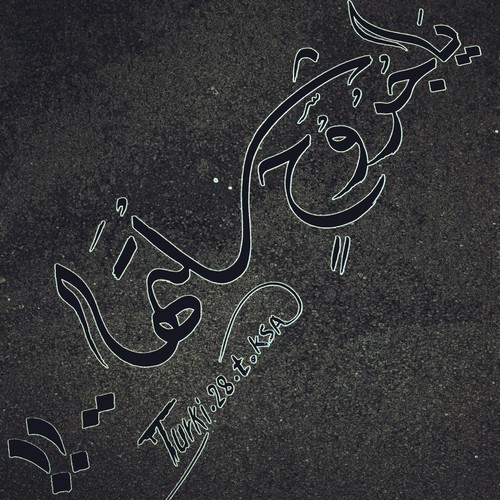 يا جروح كلها
Turki.28.t.KSA